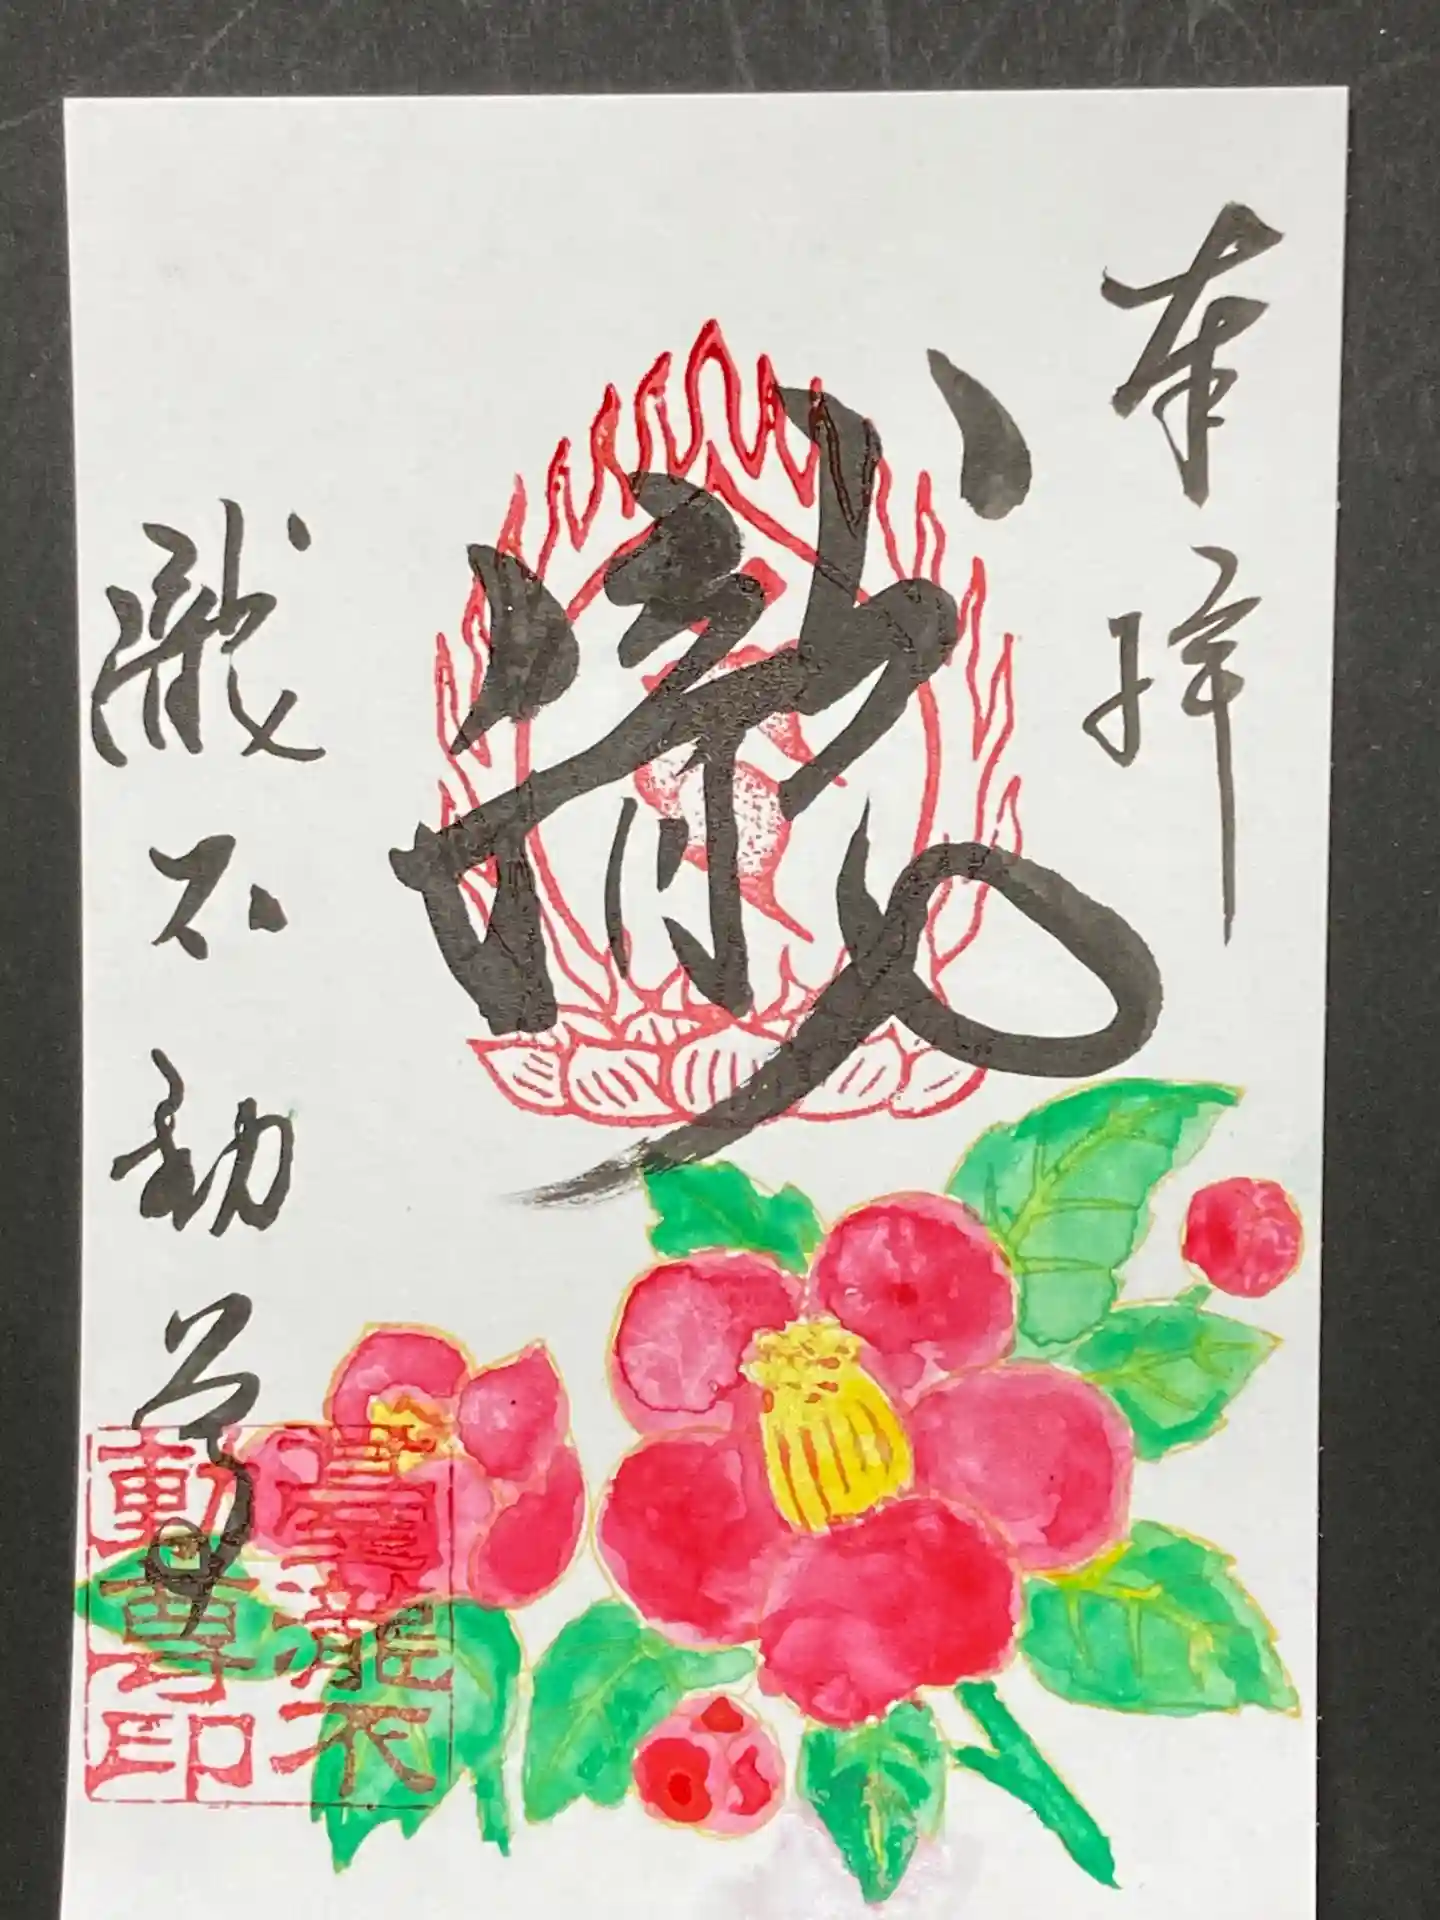 奉拝
瀧不動尊
瀧不
動尊印